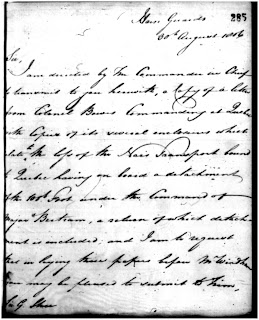 285
Horse Guards
30th August 1806
Sir,
I am directed by The Commander in Chief
to transmit to you herewith, a Copy of a letter
from Colonel Bowes Commanding at Quebec
with Copies of its several enclosures which
relate to the loss of the Naias Transport bound
to Quebec having on board a detachment
of the 100th Foot under the Command of
Major Bertram, a return of which detach-
ment is included; and I am to request
that in laying these papers before Mr Windham
you may be pleased to submit to him,
Shee